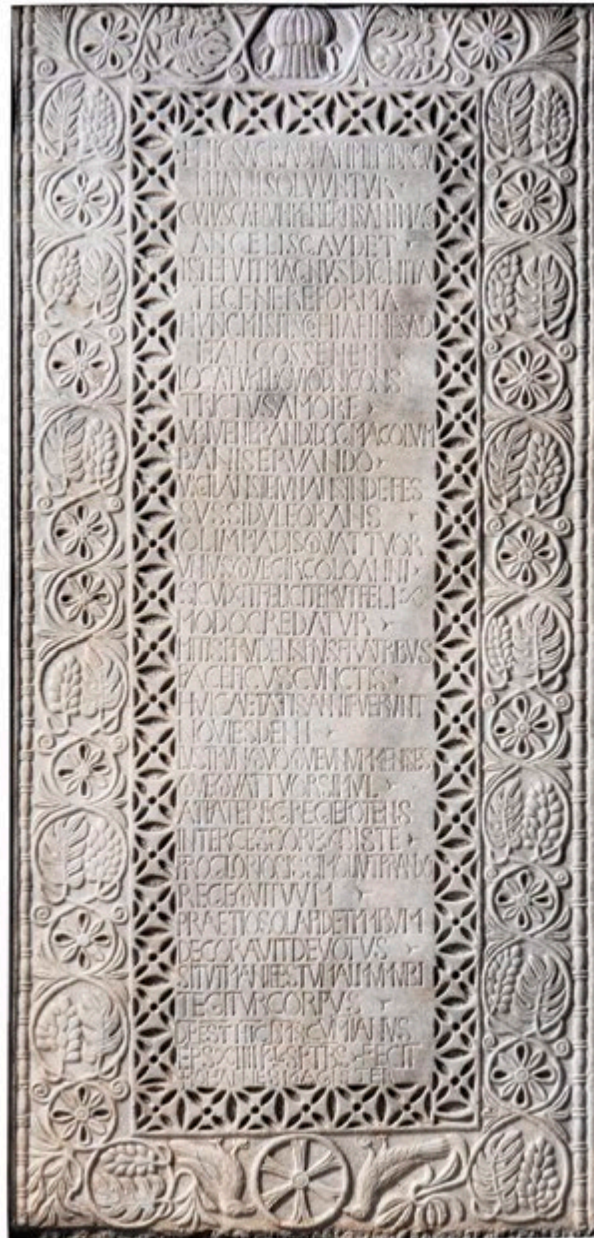 HIC SACRA BEATI MEMBRA CV
MIANI SOLVVNTVR
CVIVS CAELVM PENETRANS ANIMA CV
ANGELIS GAVDET
ISTE FVIT MAGNVS DIGNITA
TE GENERE FORMA
HVNC MISIT SCOTHIA FINES AD
ITALICOS SENEM
LOCATVR EBOVIO DNI CONS
TRICTVS AMORE
VBI VENERANDI DOGMA COLVM
BANI SERVANDO
VIGILANS IEIVNANS INDEFES
SVS SIDVLE ORANS
OLIMPIADIS QVATTVOR
VNIVSQVE CIRCOLO ANNI
SIC VIXIT FELICITER VT FELIX
MODO CREDATVR
MITIS PRVDENS PIVS FRATRIBVS
PACIFICVS CVNCTIS
HVIC AETATIS ANNI FVERVNT
NOVIES DENI
LVSTRVM QVOQVE VNVM MENSES
QVE QVATTVOR SIMVL
AT PATER EGREGIE POTENS
INTERCESSOR EXISTE
PRO GLORIOCISSIMO LIVTPRANDO
REGE QVI TVVM
PRAETIOSO LAPIDE TYMBVM
DECORAVIT DEVOTVS
SIT VT MANIFESTVM ALMVM VBI
TEGITVR CORPVS
EST HIC CVMIANVS
EPS XIIII FECIT